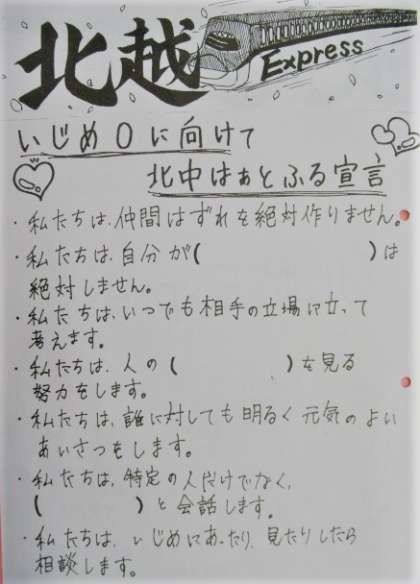 北越
Express
いじめ0に向けて
北中はぁとふる宣言
・私たちは、仲間はずれを絶対作りません。
・私たちは、自分が(　　　　　　　　)は
絶対しません。
・私たちは、いつでも相手の立場に立って
考えます。
・私たちは、人の(　　　　　　)を見る
努力をします。
・私たちは、誰に対しても明るく元気のよい
あいさつをします。
・私たちは、特定の人だけでなく、
(　　　　　　)と会話します。
・私たちは、いじめにあったり、見たりしたら
相談します。